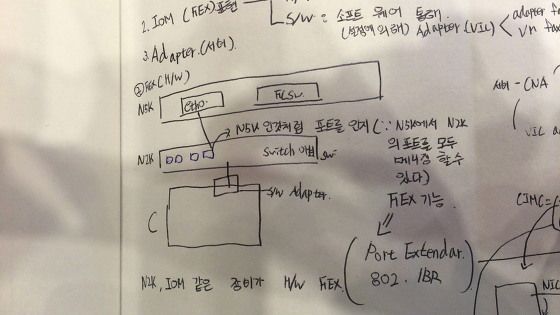 2. IOM (FEX) 포트
S/W : 소프트 웨어 통해
(설정에 의해) Adapter (VIC)
adapter
3. Adapter (서버)
② FEX (H/W)
서버 - CNA
N5K
etho
N5K 안간처럼 포트를 인지 (∵ N5K에서 N2K
의 포트를 모두
할 수
있다)
FEX 기능.
VIC
N2K
Switch
S/W Adapter.
C
CIMC
Port Extendar.
802. 1BR
N2K, IOM 같은 장비가 H/W FEX.
NIC